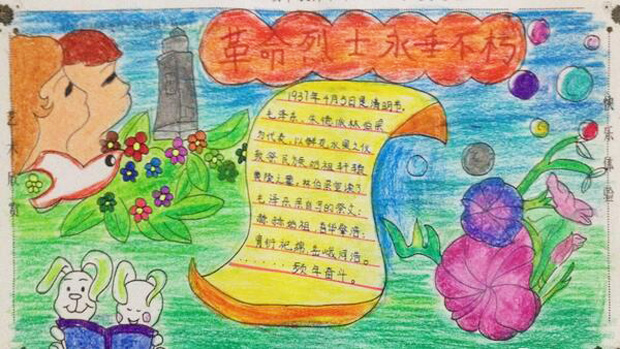 革命烈士永垂不朽
1937年4月5日是清明节。
毛泽东、朱德派林伯渠
为代表，以鲜花水果之仪
致祭民族始祖轩辕
黄陵之墓。林伯渠宣读了
毛泽东亲自写的祭文：
赫赫始祖，吾华肇造；
胄衍祀绵，岳峨河浩。
………年奋斗。
快乐体验
艺术